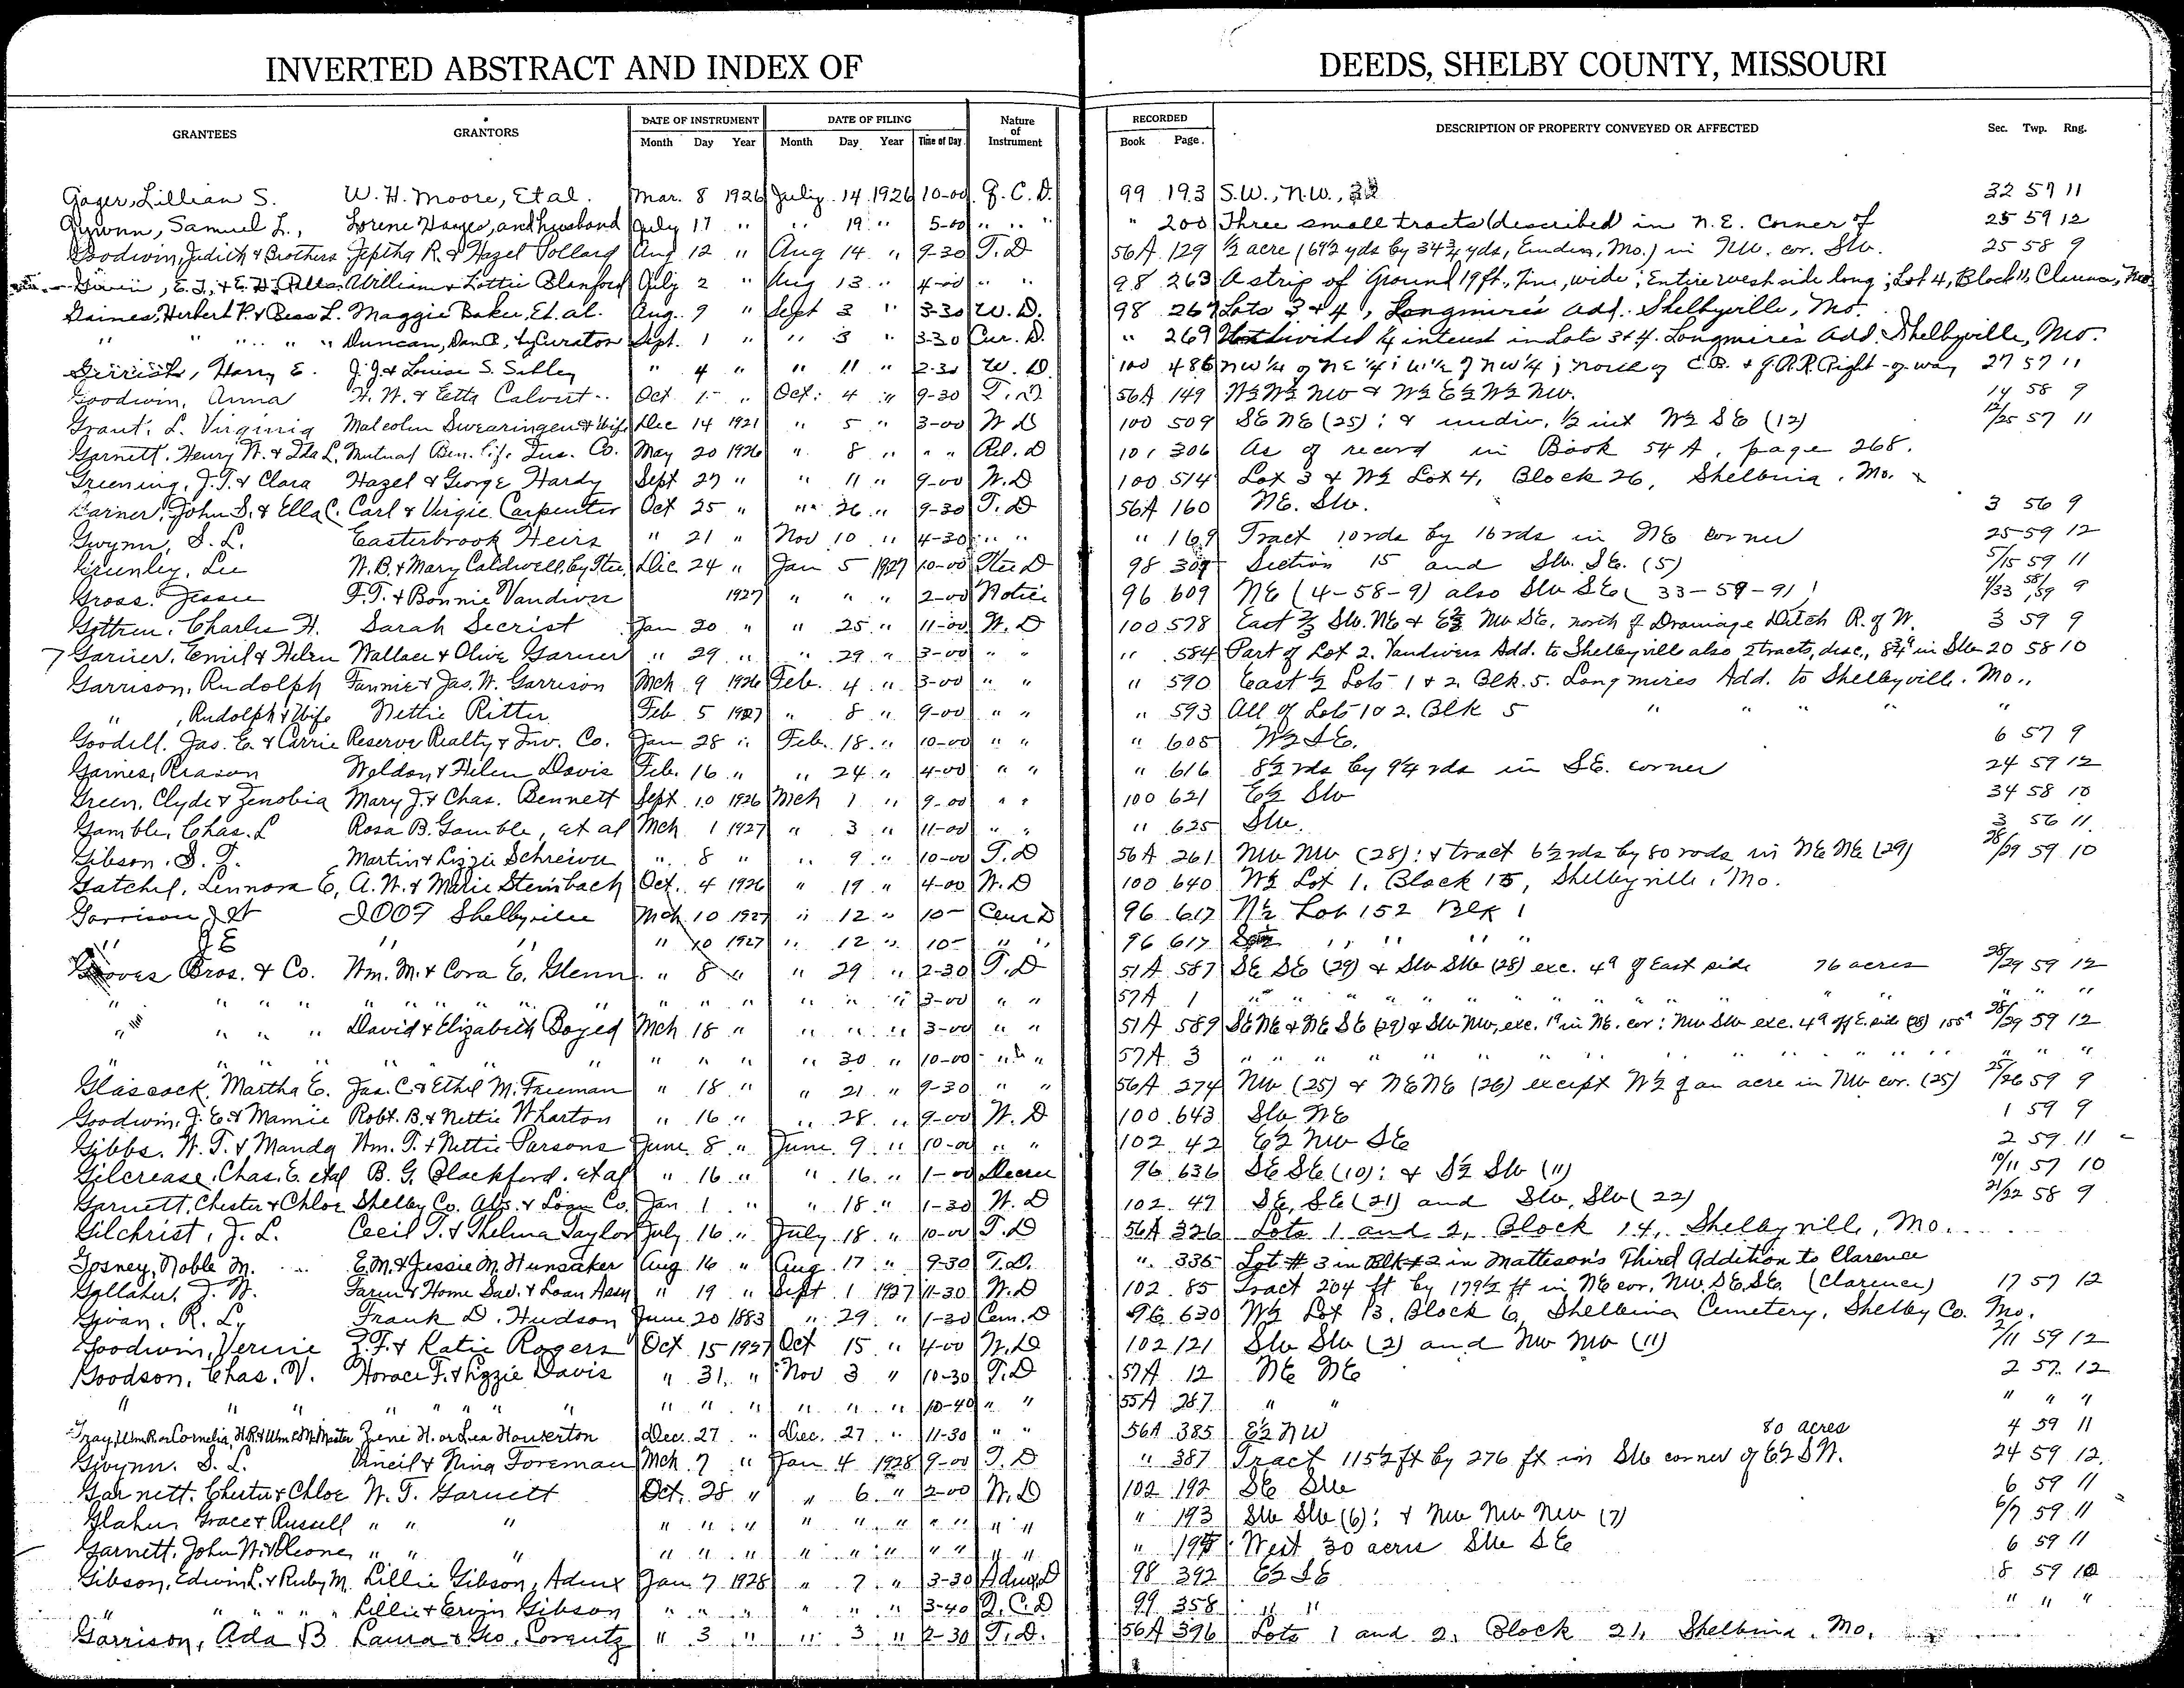 INVERTED ABSTRACT AND INDEX OF DEEDS, SHELBY COUNTY, MISSOURI
GRANTEES GRANTORS DATE OF INSTRUMENT DATE OF FILING Nature of Instrument RECORDED DESCRIPTION OF PROPERTY CONVEYED OR AFFECTED Sec. Twp. Rng.
Month Day Year Month Day Year Time of Day Book Page
Gager, Lillian S. W. H. Moore, Et al. Mar. 8 1926 July 14 1926 10-00 Q. C. D. 99 193 S.W., N.W., 32 32 57 11
Gywnn, Samuel L., Lorene Hayes, and husband July 17 " " 19 " 5-00 " " " " 200 Three small tracts (described in N.E. Corner of 25 59 12
Goodwin, Judith & Brothers Jeptha R. & Hazel Pollard Aug 12 " Aug 14 " 9-30 T. D 56A 129 ½ acre (69½ yds by 34¾ yds, Emden, Mo.) in NW. cor. SW. 25 58 9
William & Lottie Blanford July 2 " Aug 13 " 4-00 " " 98 263 A strip of Ground 19 ft., wide; Entire west side long; Lot 4, Block 11, Clarence, Mo
Gaines, Herbert P. & Bess L. Maggie Baker, Et. al. Aug. 9 " Sept 3 " 3-30 W. D. 98 267 Lots 3 & 4, Longmire's Add. Shelbyville, Mo.
" " " " Duncan, Dan B., by Curator Sept. 1 " " 3 " 3-30 Cur. D. " 269 Undivided ¼ interest in Lots 3 & 4. Longmire's Add. Shelbyville, Mo.
Gerrish, Harry E. J. J. & Louise S. Sibley " 4 " " 11 " 2-30 W. D. 100 486 NW ¼ of NE ¼; W ½ of NW ¼; north of C.B. & Q.R.R. Right-of-way 27 57 11
Goodwin, Anna H. W. & Etta Calvert Oct 1 " Oct. 4 " 9-30 T. D 56A 149 W½ W½ NW & W½ E½ W½ NW. 14 58 9
Grant, L. Virginia Malcolm Swearingen & Wife Dec 14 1921 " 5 " 3-00 W D 100 509 SE NE (25): & undiv. ½ int W½ SE (12) 12/25 57 11
Garnett, Henry W. & Ida L. Mutual Ben. Life Ins. Co. May 20 1926 " 8 " " " Rel. D 101 306 As of record in Book 54 A, page 268.
Greening, J. T. & Clara Hazel & George Hardy Sept 27 " " 11 " 9-00 W. D 100 514 Lot 3 & W½ Lot 4, Block 26, Shelbina, Mo.
Garner, John S. & Ella C. Carl & Virgie Carpenter Oct 25 " " 26 " 9-30 T. D 56A 160 NE. SW. 3 56 9
Gwynn, S. L. Easterbrook Heirs " 21 " Nov 10 " 4-30 " " " 169 Tract 10 rds by 16 rds in NE corner 25 59 12
Greenley, Lee W. B. & Mary Caldwell, by Stee. Dec 24 " Jan 5 1927 10-00 Stee D 98 309 Section 15 and SW. SE. (5) 5/15 59 11
Gross. Jessie F. T. & Bonnie Vandiver 1927 " " " 2-00 Notice 96 609 NE (4-58-9) also SW SE (33-59-9) 4/33 58/59 9
Gottren, Charles H. Sarah Secrist Jan 20 " " 25 " 11-00 W. D 100 578 East ⅔ SW. NE & E⅔ NW SE, north of Drainage Ditch R. of W. 3 59 9
7 Garner, Emil & Helen Wallace & Olive Garner " 29 " " 29 " 3-00 " " " 584 Part of Lot 2. Vandivers Add. to Shelbyville also 2 tracts, desc., in SW 20 58 10
Garrison, Rudolph Fannie & Jas. W. Garrison Mch 9 1926 Feb. 4 " 3-00 " " " 590 East ½ Lots 1 & 2. Blk. 5. Longmires Add. to Shelbyville. Mo.
" , Rudolph & Wife Nettie Ritter Feb 5 1927 " 8 " 9-00 " " " 593 All of Lots 1 & 2. Blk 5 " " " " "
Goodell. Jas. E. & Carrie Reserve Realty & Inv. Co. Jan 28 " Feb. 18 " 10-00 " " " 605 W½ SE. 6 57 9
Gaines, Reason Weldon & Helen Davis Feb. 16 " " 24 " 4-00 " " " 616 8½ rds by 9¼ rds in SE. corner 24 59 12
Green, Clyde & Zenobia Mary J. & Chas. Bennett Sept 10 1926 Mch 1 " 9-00 " " 100 621 E½ SW 34 58 10
Gamble, Chas. L Rosa B. Gamble, et al Mch 1 1927 " 3 " 11-00 " " " 625 SW. 3 56 11
Gibson, S. T. Martin & Lizzie Schreiver " 8 " " 9 " 10-00 T. D 56A 261 NW NW (28): & tract 6½ rds by 80 rods in NE NE (29) 28/29 59 10
Gatchel, Lennora E, A. W. & Marie Steinbach Oct. 4 1926 " 19 " 4-00 W. D 100 640 W½ Lot 1. Block 15, Shelbyville, Mo.
Garrison J W IOOF Shelbyville Mch 10 1927 " 12 " 10- Cem D 96 617 N½ Lot 152 Blk 1
" J E " " " 10 1927 " 12 " 10- " " 96 617 S½ " " " "
Groves Bros. & Co. Wm. M. & Cora E. Glenn " 8 " " 29 " 2-30 T. D 51A 587 SE SE (29) & SW SW (28) exc. 4ᵃ of East side 76 acres 28/29 59 12
" " " " " " " " " " " " " " " 3-00 " " 57A 1 " " " " " " " " " " "
" " " " David & Elizabeth Boyed Mch 18 " " " " 3-00 " " 51A 589 SE NE & NE SE (29) & SW NW, exc. 1ᵃ in NE. cor: NW SW exc. 4ᵃ off E. side (28) 155ᵃ 28/29 59 12
" " " " " " " " " " " " 30 " 10-00 " " 57A 3 " " " " " " " " " " "
Glascock, Martha E. Jas. C. & Ethel M. Freeman " 18 " " 21 " 9-30 " " 56A 274 NW (25) & NE NE (26) except W½ of an acre in NW cor. (25) 25/26 59 9
Goodwin, J. E. & Mamie Robt. B. & Nettie Wharton " 16 " " 28 " 9-00 W. D 100 643 SW NE 1 59 9
Gibbs. W. T. & Manda Wm. T. & Nettie Parsons June 8 " June 9 " 10-00 " " 102 42 E½ NW SE 2 59 11
Gilcrease, Chas. E. et al B. G. Blackford, et al " 16 " " 16 " 1-00 Decree 96 636 SE SE (10): & S½ SW (11) 10/11 57 10
Garnett, Chester & Chloe Shelby Co. Abs. & Loan Co. Jan 1 " " 18 " 1-30 W. D 102 47 SE, SE (21) and SW, SW (22) 21/22 58 9
Gilchrist, J. L. Cecil T. & Thelma Taylor July 16 " July 18 " 10-00 T. D 56A 326 Lots 1 and 2, Block 14, Shelbyville, Mo.
Gosney, Noble M. E. M. & Jessie M. Hunsaker Aug 16 " Aug 17 " 9-30 T. D. " 335 Lot # 3 in Blk # 2 in Matteson's Third Addition to Clarence
Gallaher, J. W. Farm & Home Sav. & Loan Assn " 19 " Sept 1 1927 11-30 W. D 102 85 Tract 204 ft by 179½ ft in NE cor. NW. SE. SE. (Clarence) 17 57 12
Givan, R. L, Frank D. Hudson June 20 1883 " 29 " 1-30 Cem. D 96 630 W½ Lot 13, Block 6, Shelbina Cemetery, Shelby Co. Mo.
Goodwin, Vernie Z. F. & Katie Rogers Oct 15 1927 Oct 15 " 4-00 W. D 102 121 SW SW (2) and NW NW (11) 2/11 59 12
Goodson, Chas. V. Horace F. & Lizzie Davis " 31 " Nov 3 " 10-30 T. D 57A 12 NE NE 2 57 12
" " " " " " " " " " " " " " 10-40 " " 55A 287 " " " " "
Gray, Wm. R. or Cornelia, H. R. & Wm. C. McMaster Irene H. or Lea Howerton Dec. 27 " Dec. 27 " 11-30 " " 56A 385 E½ NW 80 acres 4 59 11
Gwynn. S. L. Virneil & Nina Foreman Mch 7 " Jan 4 1928 9-00 T. D " 387 Tract 115½ ft by 276 ft in SW corner of E½ SW. 24 59 12.
Garnett. Chester & Chloe W. T. Garnett Oct. 28 " " 6 " 2-00 W. D 102 192 SE SW 6 59 11
Glahn, Grace & Russell " " " " " " " " " " " " " " 193 SW SW (6): & NW NW NW (7) 6/7 59 11
Garnett, John W. & Cleone, " " " " " " " " " " " " " " 195 West 30 acres SW SE 6 59 11
Gibson, Edwin L. & Ruby M. Lillie Gibson, Admx Jan 7 1928 " 7 " 3-30 Adm. D 98 392 E½ SE 8 59 10
" " " " " Lillie & Ervin Gibson " " " " " " 3-40 Q. C. D 99 358 " " " " "
Garrison, Ada B Laura & Geo. Lorentz " 3 " " 3 " 2-30 T. D. 56A 396 Lots 1 and 2, Block 21, Shelbina, Mo.